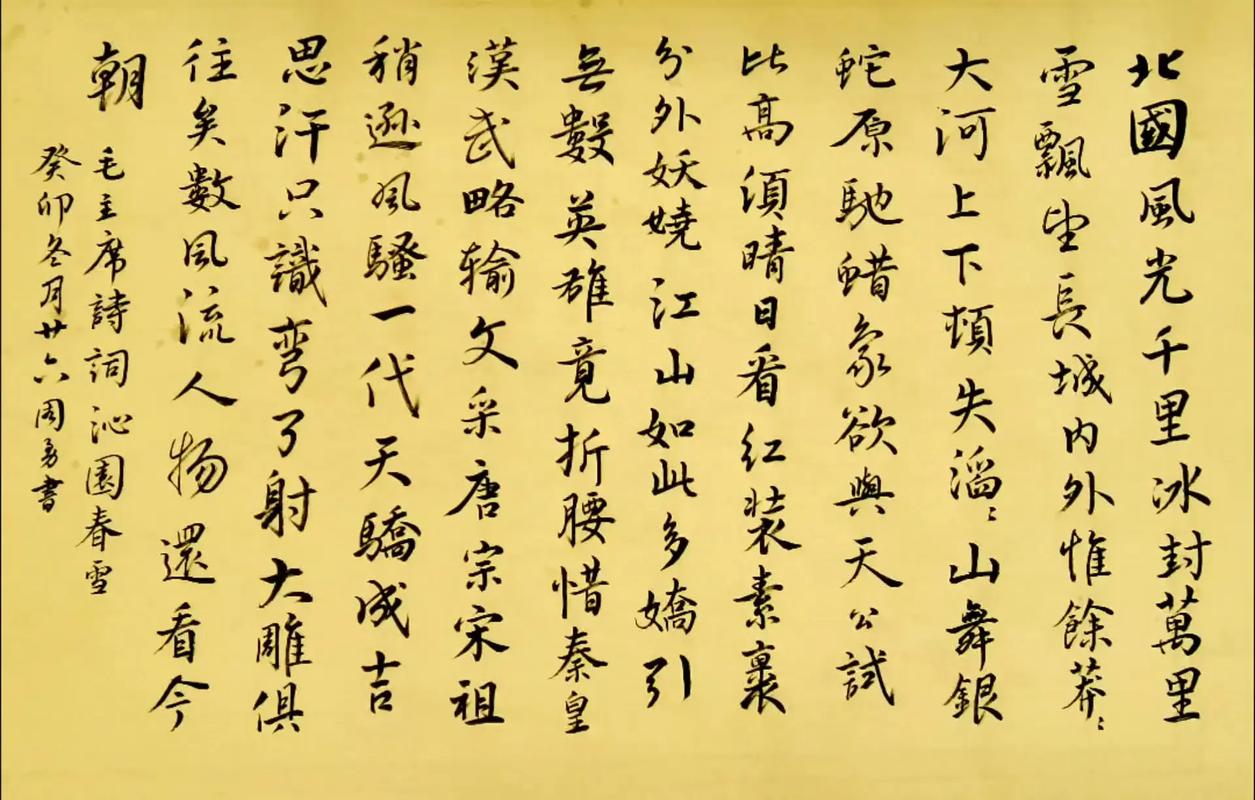 北國風光千里冰封萬里
雪飄望長城内外惟餘莽〻
大河上下頓失滔〻山舞銀
蛇原馳蜡象欲與天公試
比高須晴日看红装素裹
分外妖嬈江山如此多嬌引
無數英雄竟折腰惜秦皇
漢武略输文采唐宗宋祖
稍遜風騷一代天驕成吉
思汗只識彎弓射大雕俱
往矣數風流人物還看今
朝
毛主席詩詞沁園春雪
癸卯冬月廿六周勇書